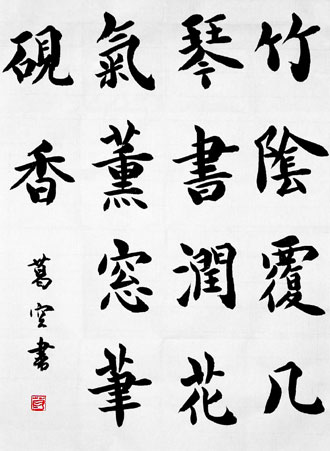 竹陰覆几
琴書潤花
氣薰窓筆
硯香
葛空書